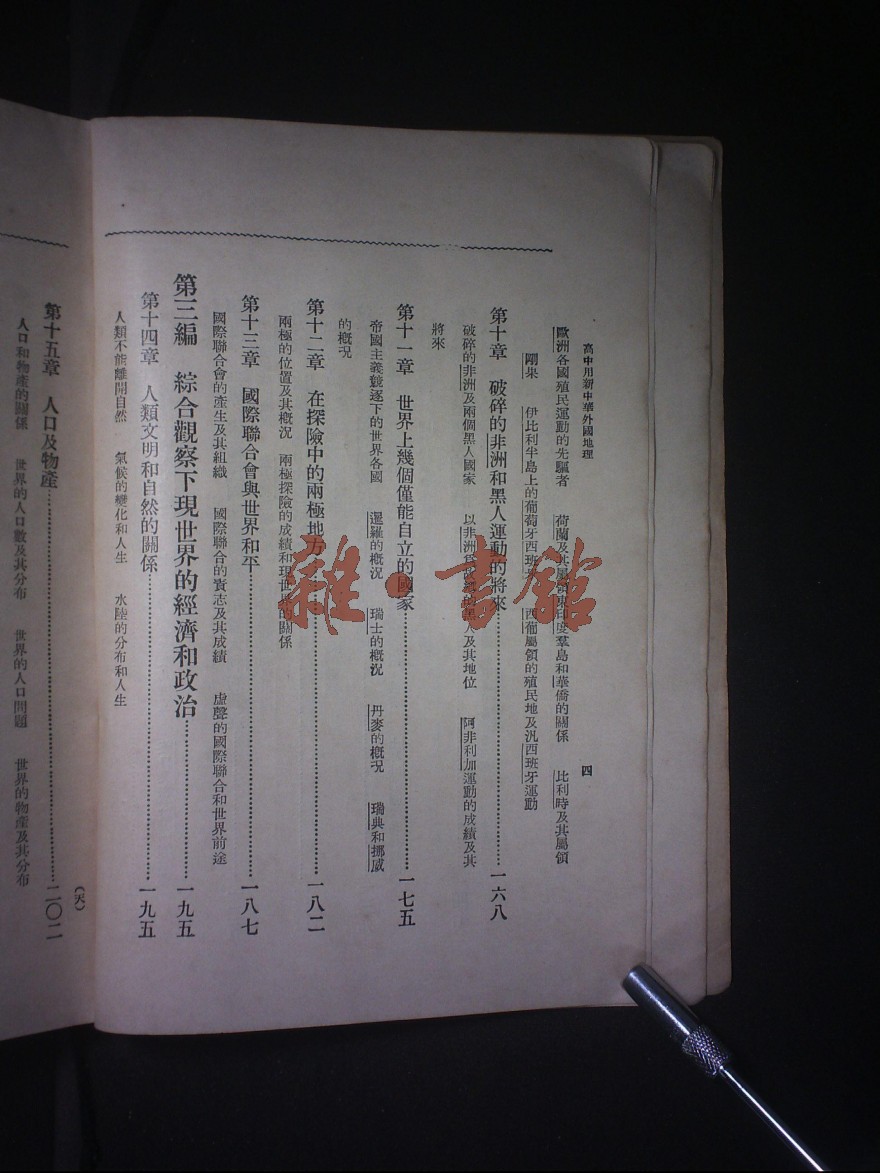 高中用新中華外國地理 四
歐洲各國殖民運動的先驅者 荷蘭及其屬領東印度羣島和華僑的關係 比利時及其屬領
剛果 伊比利半島上的葡萄牙西班牙 西葡屬領的殖民地及汎西班牙運動
第十章 破碎的非洲和黑人運動的將來 一六八
破碎的非洲及兩個黑人國家 以非洲為故鄉的黑人及其地位 阿非利加運動的成績及其
將來
第十一章 世界上幾個僅能自立的國家 一七五
帝國主義競逐下的世界各國 暹羅的概況 瑞士的概況 丹麥的概況 瑞典和挪威
的概況
第十二章 在探險中的兩極地方 一八二
兩極的位置及其概況 兩極探險的成績和現世界的關係
第十三章 國際聯合會與世界和平 一八七
國際聯合會的產生及其組織 國際聯合的實志及其成績 虛聲的國際聯合和世界前途
第三編 綜合觀察下現世界的經濟和政治 一九五
第十四章 人類文明和自然的關係 一九五
人類不能離開自然 氣候的變化和人生 水陸的分布和人生
第十五章 人口及物產 二〇二
人口和物產的關係 世界的人口數及其分布 世界的人口問題 世界的物產及其分布
雜·書館